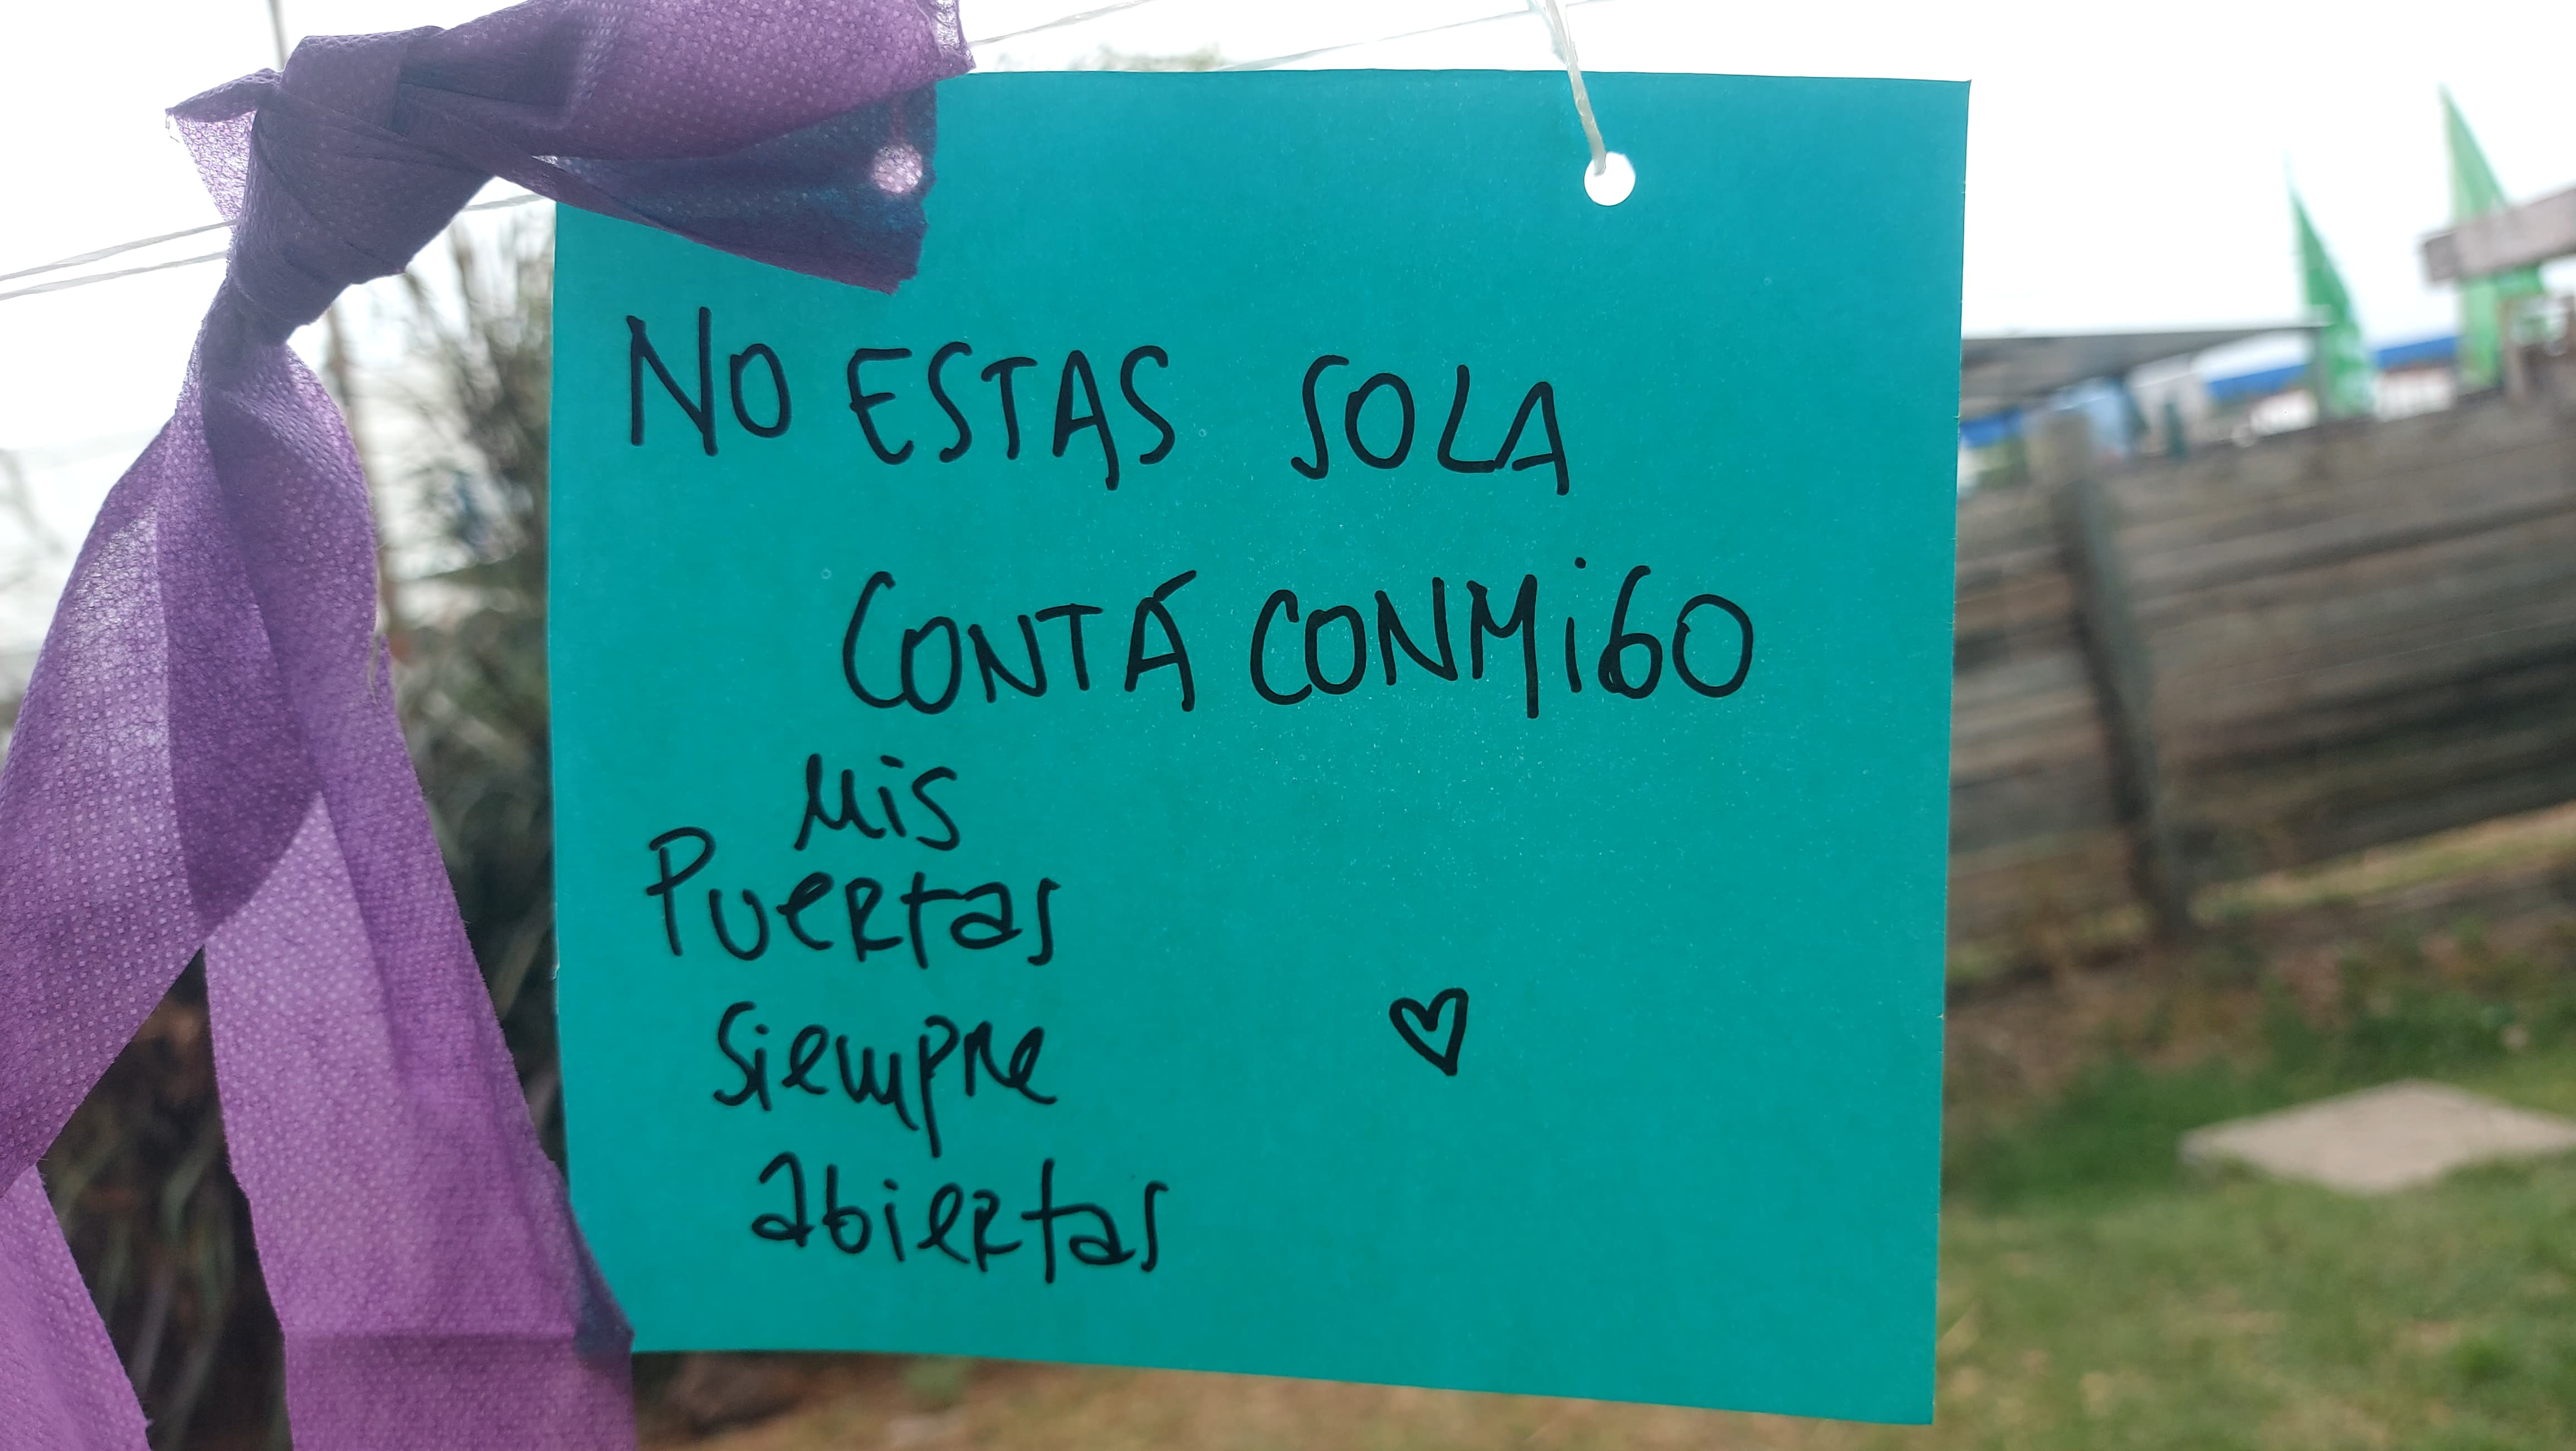 NO ESTAS SOLA
CONTÁ CONMiGO
Mis
Puertas
Siempre
abiertas